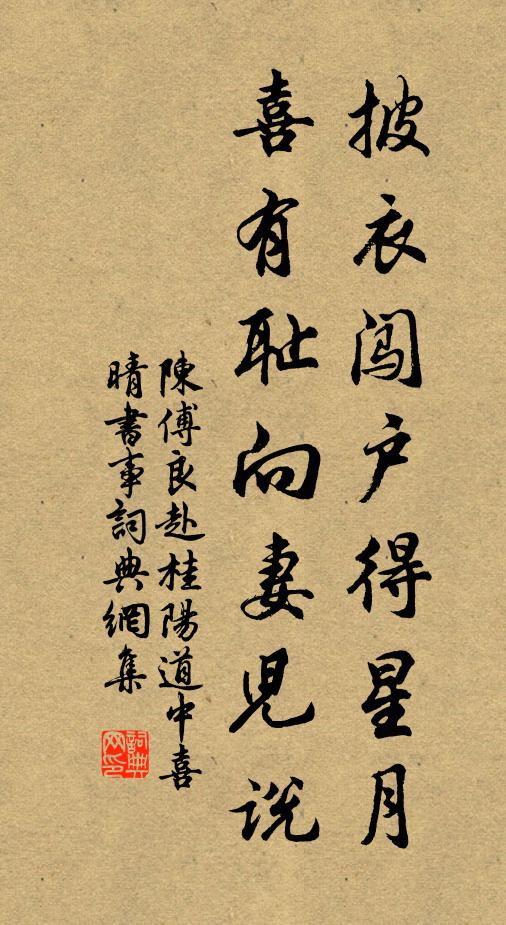 披衣闯户得星月
喜有耻向妻児説
陳傅良赴桂陽道中喜
晴書事詞典網集
詞典网印